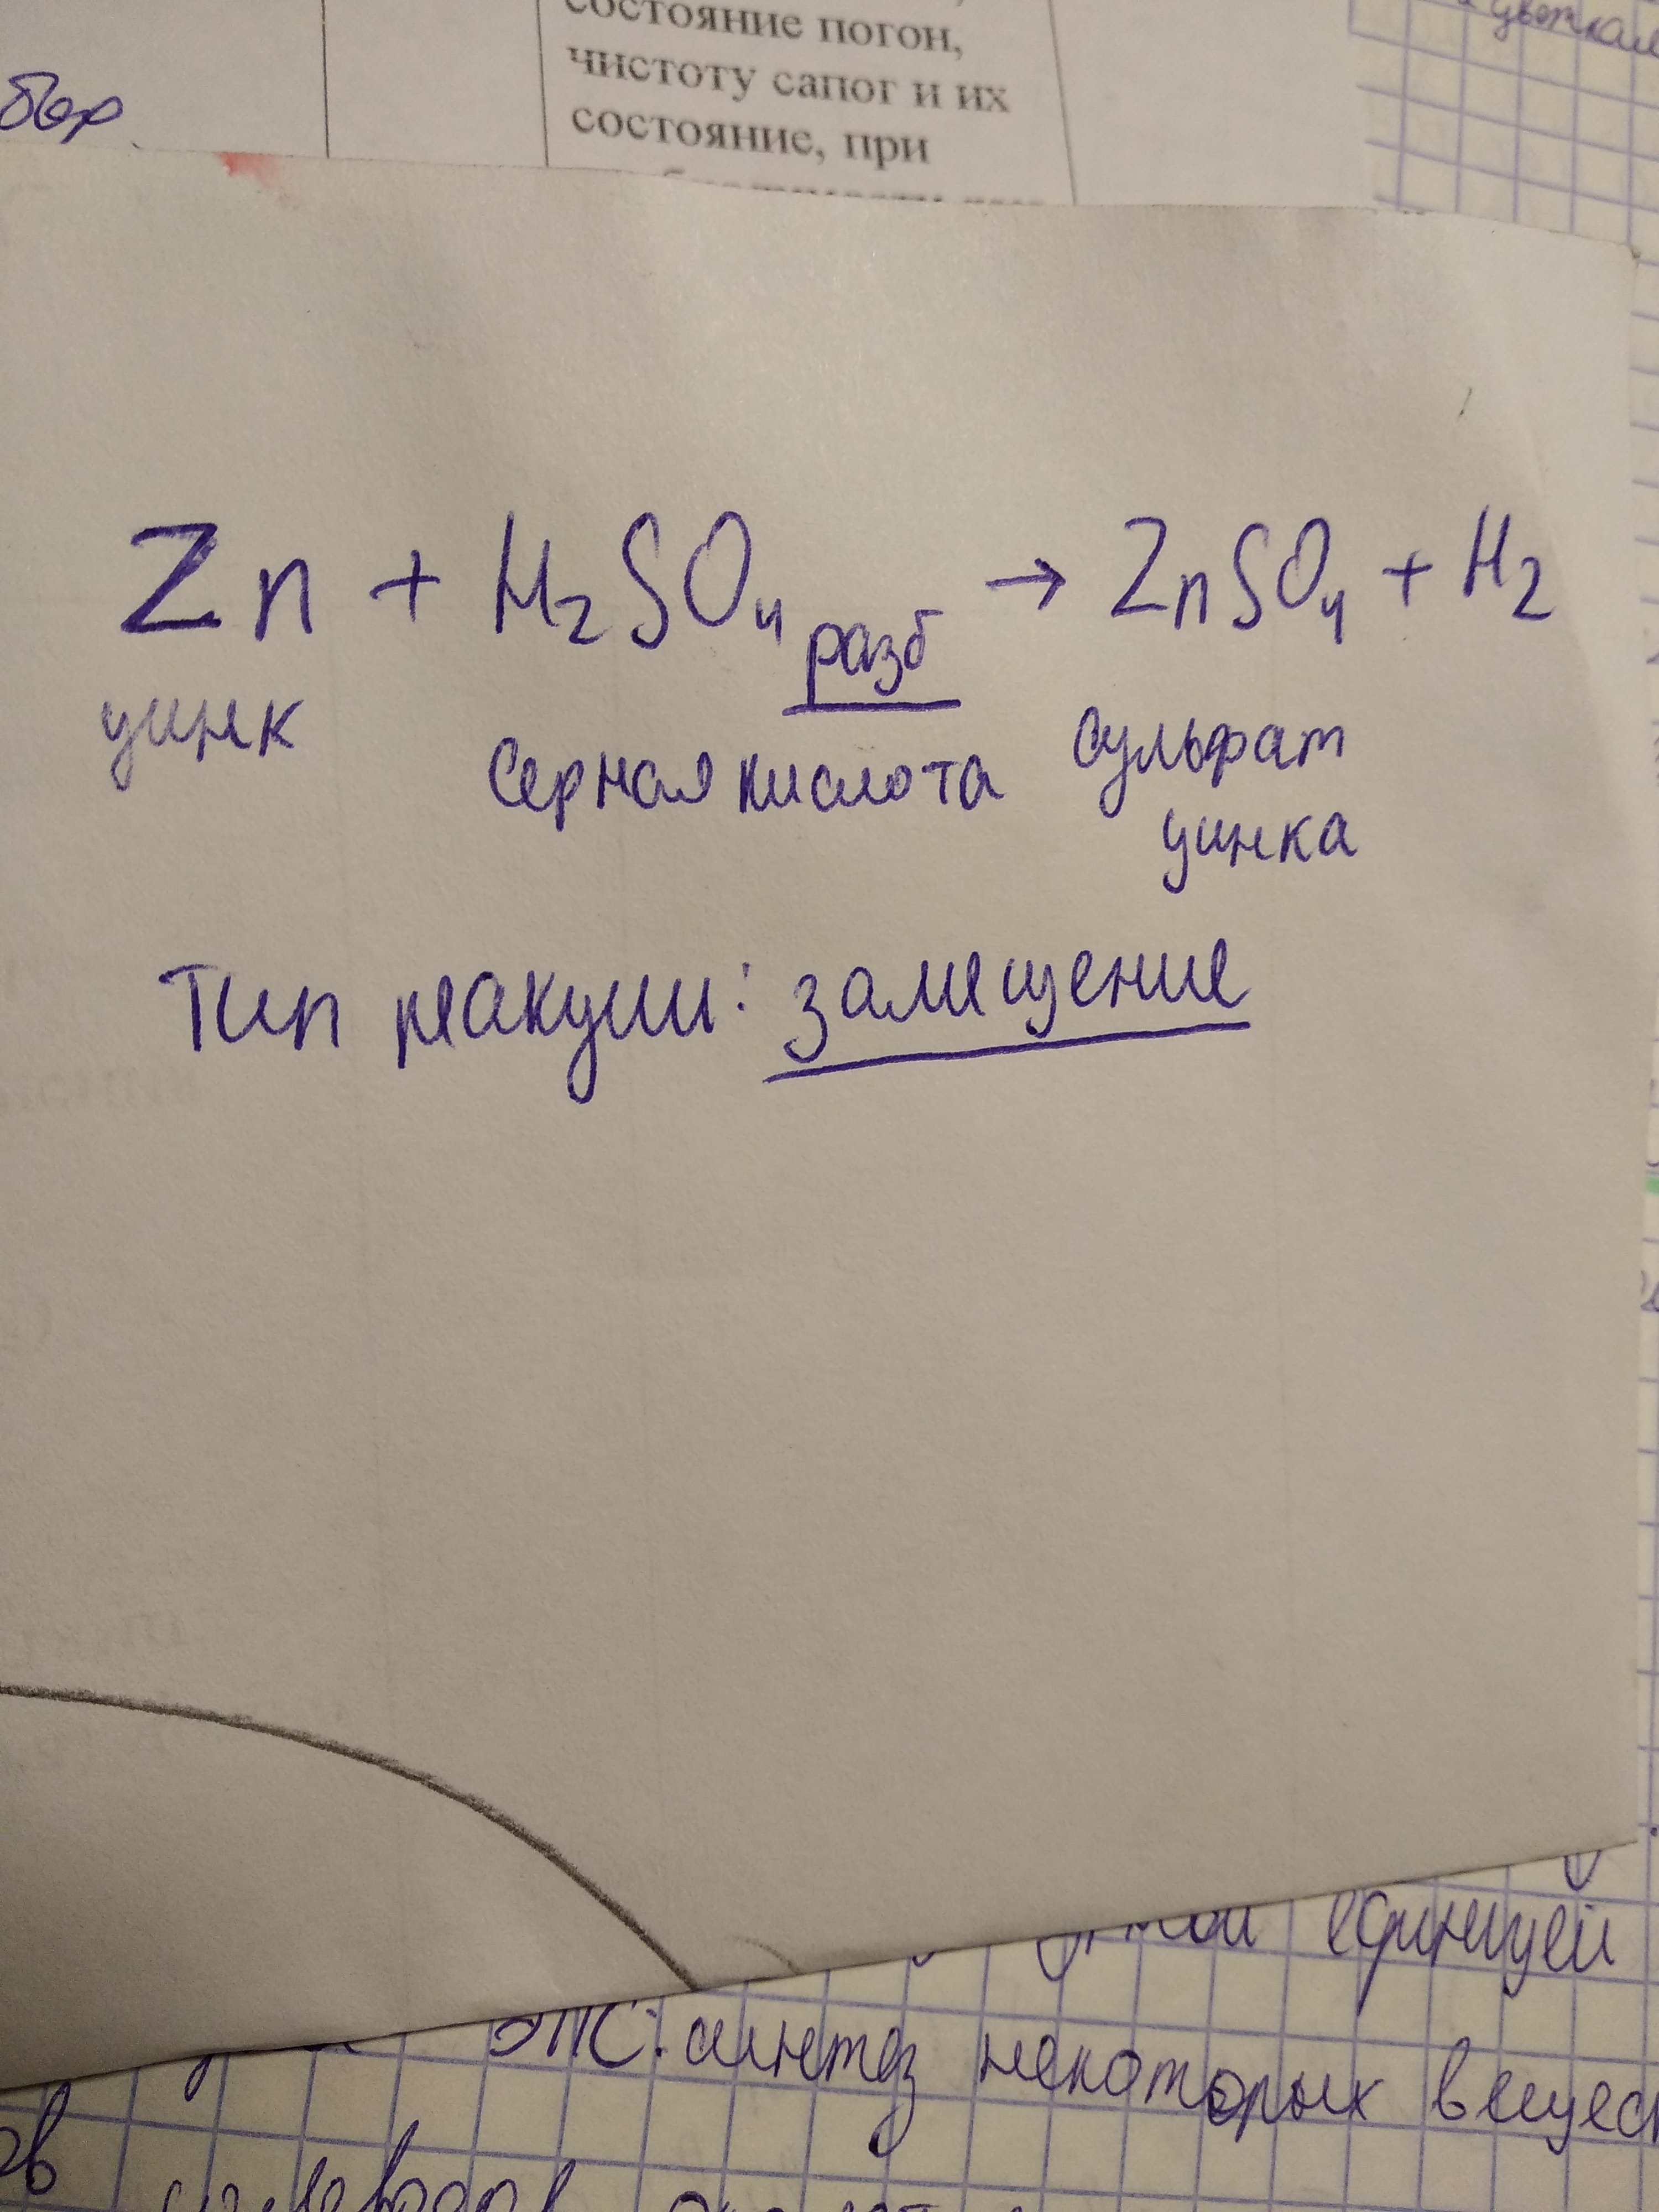 состояние погон,
чистоту сапог и их
состояние, при
Zn + H₂SO₄ разб → ZnSO₄ + H₂
цинк серная кислота сульфат
цинка
Тип реакции: замещение
единицей
ЭПС: синтез некоторых вещес